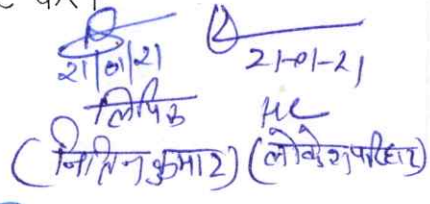 21/01/21 21-01-21
लिपिक HC
(नितिन कुमार) (लोकेश परिहार)